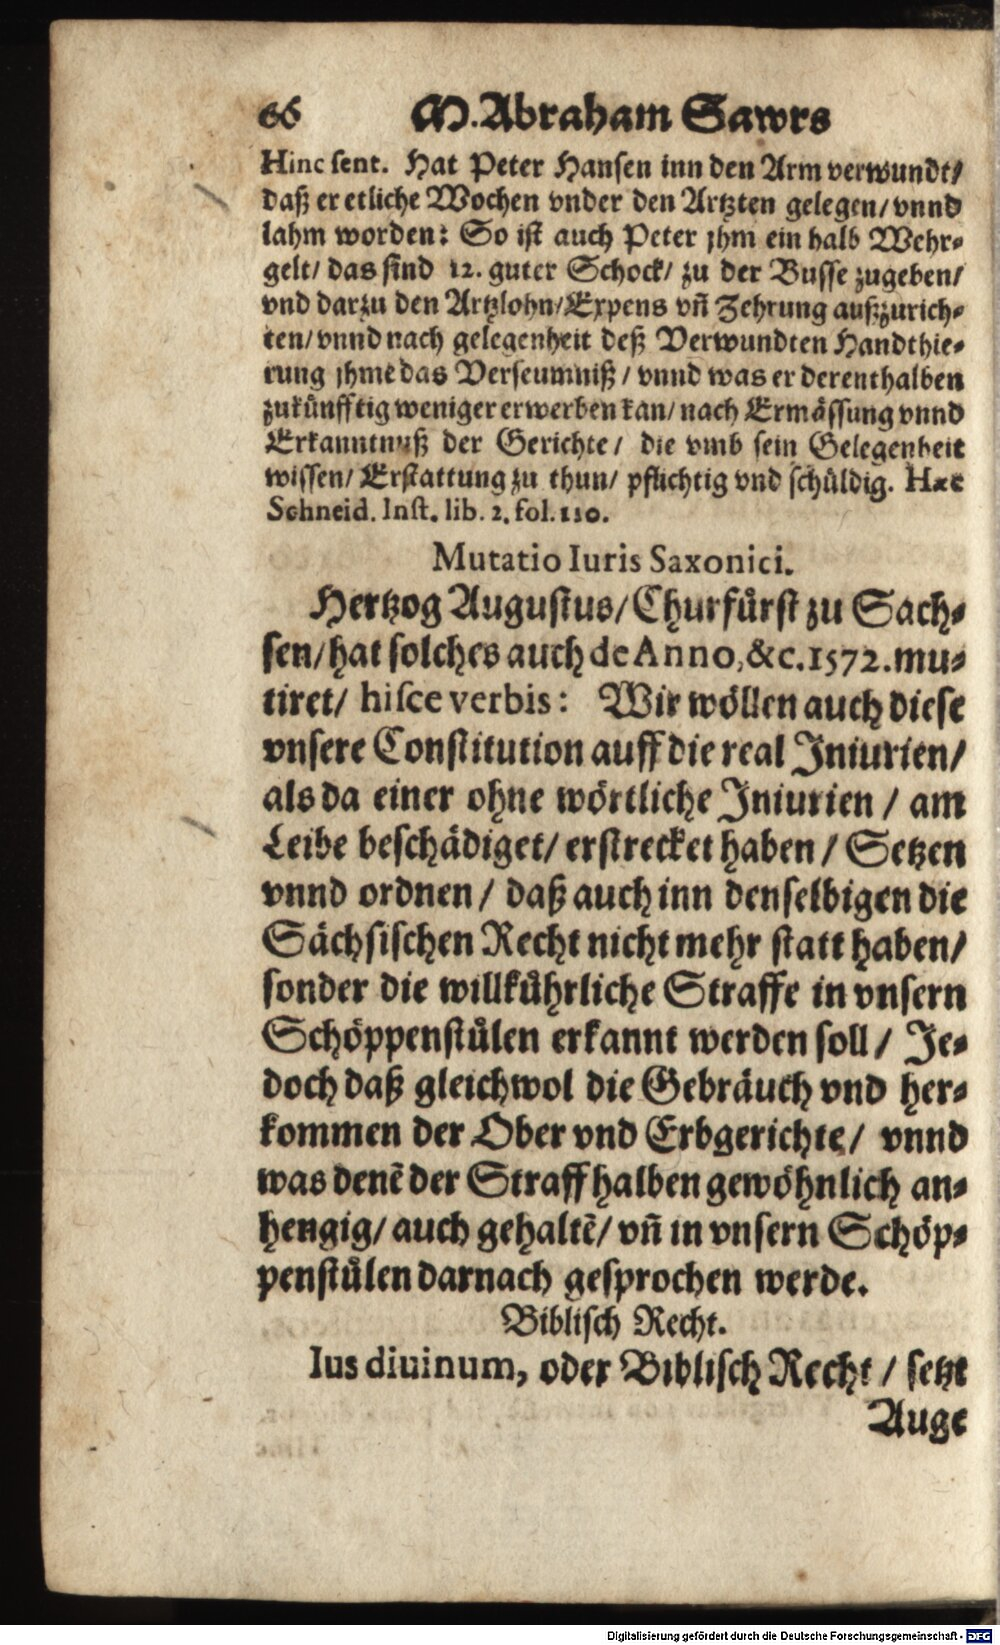 66 M. Abraham Sawrs
Hinc sent. Hat Peter Hansen inn den Arm verwundt/
daß er etliche Wochen vnder den Artzten gelegen/ vnnd
lahm worden: So ist auch Peter jhm ein halb Wehr-
gelt/ das sind 12. guter Schock/ zu der Busse zugeben/
vnd darzu den Artzlohn/ Expens vñ Zehrung außzurich-
ten/ vnnd nach gelegenheit deß Verwundten Handthie-
rung jhme das Verseumniß/ vnnd was er derenthalben
zukuͤnfftig weniger erwerben kan/ nach Ermaͤssung vnnd
Erkanntnuß der Gerichte/ die vmb sein Gelegenheit
wissen/ Erstattung zu thun/ pflichtig vnd schuͤldig. Hæc
Schneid. Inst. lib. 2. fol. 110.
Mutatio Iuris Saxonici.
Hertzog Augustus/ Churfuͤrst zu Sach-
sen/ hat solches auch de Anno, &c. 1572. mu-
tiret/ hisce verbis: Wir woͤllen auch diese
vnsere Constitution auff die real Iniurien/
als da einer ohne woͤrtliche Iniurien/ am
Leibe beschaͤdiget/ erstrecket haben/ Setzen
vnnd ordnen/ daß auch inn denselbigen die
Saͤchsischen Recht nicht mehr statt haben/
sonder die willkuͤhrliche Straffe in vnsern
Schoͤppenstuͤlen erkannt werden soll/ Je-
doch daß gleichwol die Gebraͤuch vnd her-
kommen der Ober vnd Erbgerichte/ vnnd
was denẽ der Straff halben gewoͤhnlich an-
hengig/ auch gehaltẽ/ vñ in vnsern Schoͤp-
penstuͤlen darnach gesprochen werde.
Biblisch Recht.
Ius diuinum, oder Biblisch Recht/ setzt
Auge
Digitalisierung gefördert durch die Deutsche Forschungsgemeinschaft - DFG